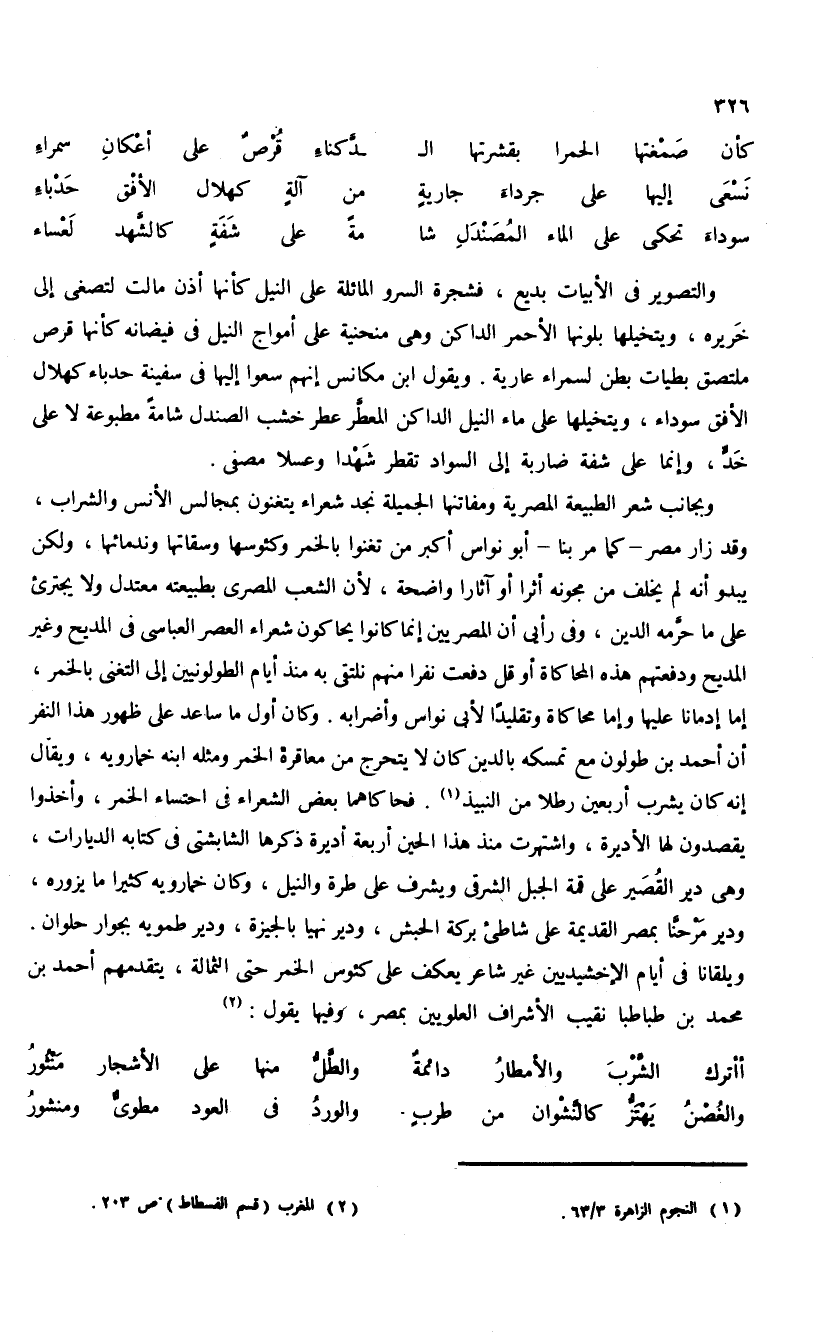 ٣٢٦
كأن صَمْغتها الحمرا بقشرتها الـ ـدَّكناءِ قُرْصٌ على أعْكانِ سمراءِ
نَسْعَى إليها على جرداءَ جاريةٍ من آلةٍ كهلال الأفْق حَدْباءِ
سوداءَ تحكى على الماء المُصَنْدَلِ شا مةً على شَفَةٍ كالشَّهد لَعْساء
والتصوير فى الأبيات بديع ، فشجرة السرو المائلة على النيل كأنها أذن مالت لتصغى إلى
خَريره ، ويتخيلها بلونها الأحمر الداكن وهى منحنية على أمواج النيل فى فيضانه كأنها قرص
ملتصق بطيات بطن لسمراء عارية . ويقول ابن مكانس إنهم سعوا إليها فى سفينة حدباء كهلال
الأفق سوداء ، ويتخيلها على ماء النيل الداكن المعطَّر عطر خشب الصندل شامةً مطبوعة لا على
خَدٍّ ، وإنما على شفة ضاربة إلى السواد تقطر شَهْدا وعسلا مصفى .
وبجانب شعر الطبيعة المصرية ومفاتنها الجميلة نجد شعراء يتغنون بمجالس الأنس والشراب ،
وقد زار مصر – كما مر بنا – أبو نواس أكبر من تغنوا بالخمر وكئوسها وسقاتها وندمائها ، ولكن
يبدو أنه لم يخلف من مجونه أثرا أو آثارا واضحة ، لأن الشعب المصرى بطبيعته معتدل ولا يجترئ
على ما حرَّمه الدين ، وفى رأيى أن المصريين إنما كانوا يحاكون شعراء العصر العباسى فى المديح وغير
المديح ودفعتهم هذه المحاكاة أو قل دفعت نفرا منهم نلتقى به منذ أيام الطولونيين إلى التغنى بالخمر ،
إما إدمانا عليها وإما محاكاة وتقليدًا لأبى نواس وأضرابه . وكان أول ما ساعد على ظهور هذا النفر
أن أحمد بن طولون مع تمسكه بالدين كان لا يتحرج من معاقرة الخمر ومثله ابنه خمارويه ، ويقال
إنه كان يشرب أربعين رطلا من النبيذ(١) . فحاكاهما بعض الشعراء فى احتساء الخمر ، وأخذوا
يقصدون لها الأديرة ، واشتهرت منذ هذا الحين أربعة أديرة ذكرها الشابشتى فى كتابه الديارات ،
وهى دير القُصَير على قمة الجبل الشرقى ويشرف على طرة والنيل ، وكان خمارويه كثيرا ما يزوره ،
ودير مَرْحنَّا بمصر القديمة على شاطئ بركة الحبش ، ودير نهيا بالجيزة ، ودير طمويه بجوار حلوان .
ويلقانا فى أيام الإخشيديين غير شاعر يعكف على كئوس الخمر حتى الثمالة ، يتقدمهم أحمد بن
محمد بن طباطبا نقيب الأشراف العلويين بمصر ، وفيها يقول : (٢)
أأترك الشَّرْبَ والأمطارُ دائمةٌ والطَّلُّ منها على الأشجار مَنْثورُ
والغُصْنُ يَهْتَزُّ كالنَّشْوان من طربٍ والوردُ فى العود مطوىٌّ ومنشورُ
(١) النجوم الزاهرة ٦٣/٣ .
(٢) المغرب (قسم الفسطاط) ص ٢٠٣ .